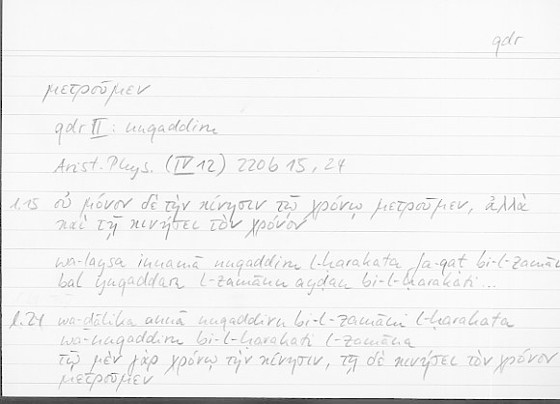 qdr
μετροῦμεν
qdr II: nuqaddiru
Arist. Phys. (IV 12) 220b 15, 24
l.15 οὐ μόνον δὲ τὴν κίνησιν τῷ χρόνῳ μετροῦμεν, ἀλλὰ
καὶ τῇ κινήσει τὸν χρόνον
wa-laysa innamā nuqaddiru l-ḥarakata fa-qaṭ bi-l-zamāni
bal nuqaddiru l-zamāna ayḍan bi-l-ḥarakati...
l.24 wa-ḏālika annā nuqaddiru bi-l-zamāni l-ḥarakata
wa-nuqaddiru bi-l-ḥarakati l-zamāna
τῷ μὲν γὰρ χρόνῳ τὴν κίνησιν, τῇ δὲ κινήσει τὸν χρόνον
μετροῦμεν